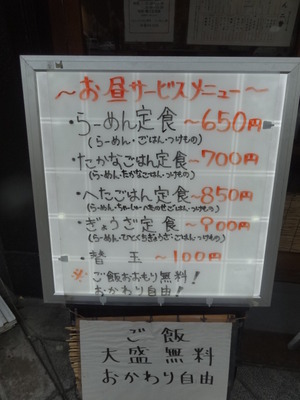 ～お昼サービスメニュー～
・らーめん定食～650円
(らーめん・ごはん・つけもの)
・たかなごはん定食～700円
(らーめん・たかなごはん・つけもの)
・へたごはん定食～850円
(らーめん・ちゃーしゅーへたのせごはん・つけもの)
・ぎょうざ定食～900円
(らーめん・ひとくちぎょうざ・ごはん・つけもの)
・替 玉～100円
※ご飯おおもり無料!
おかわり自由!
ご飯
大盛無料
おかわり自由